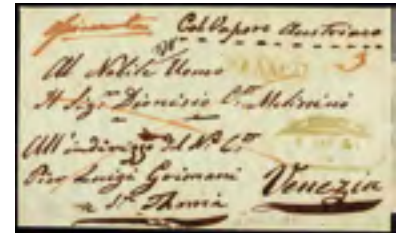 Col Vapore Austriaco
Al Nobile Uomo
Il Sigr Dionisio Ctt
All'indirizzo del N. Ctt
Pier Luigi Grimani
a Sn Thomà
Venezia